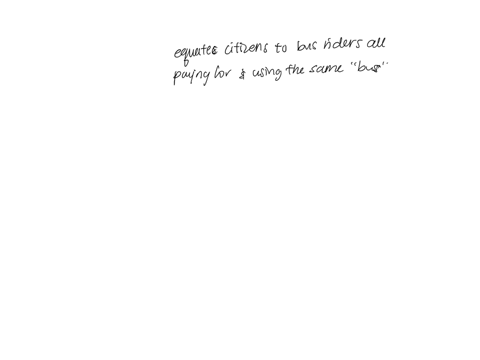 equates citizens to bus riders all
paying for & using the same "bus"